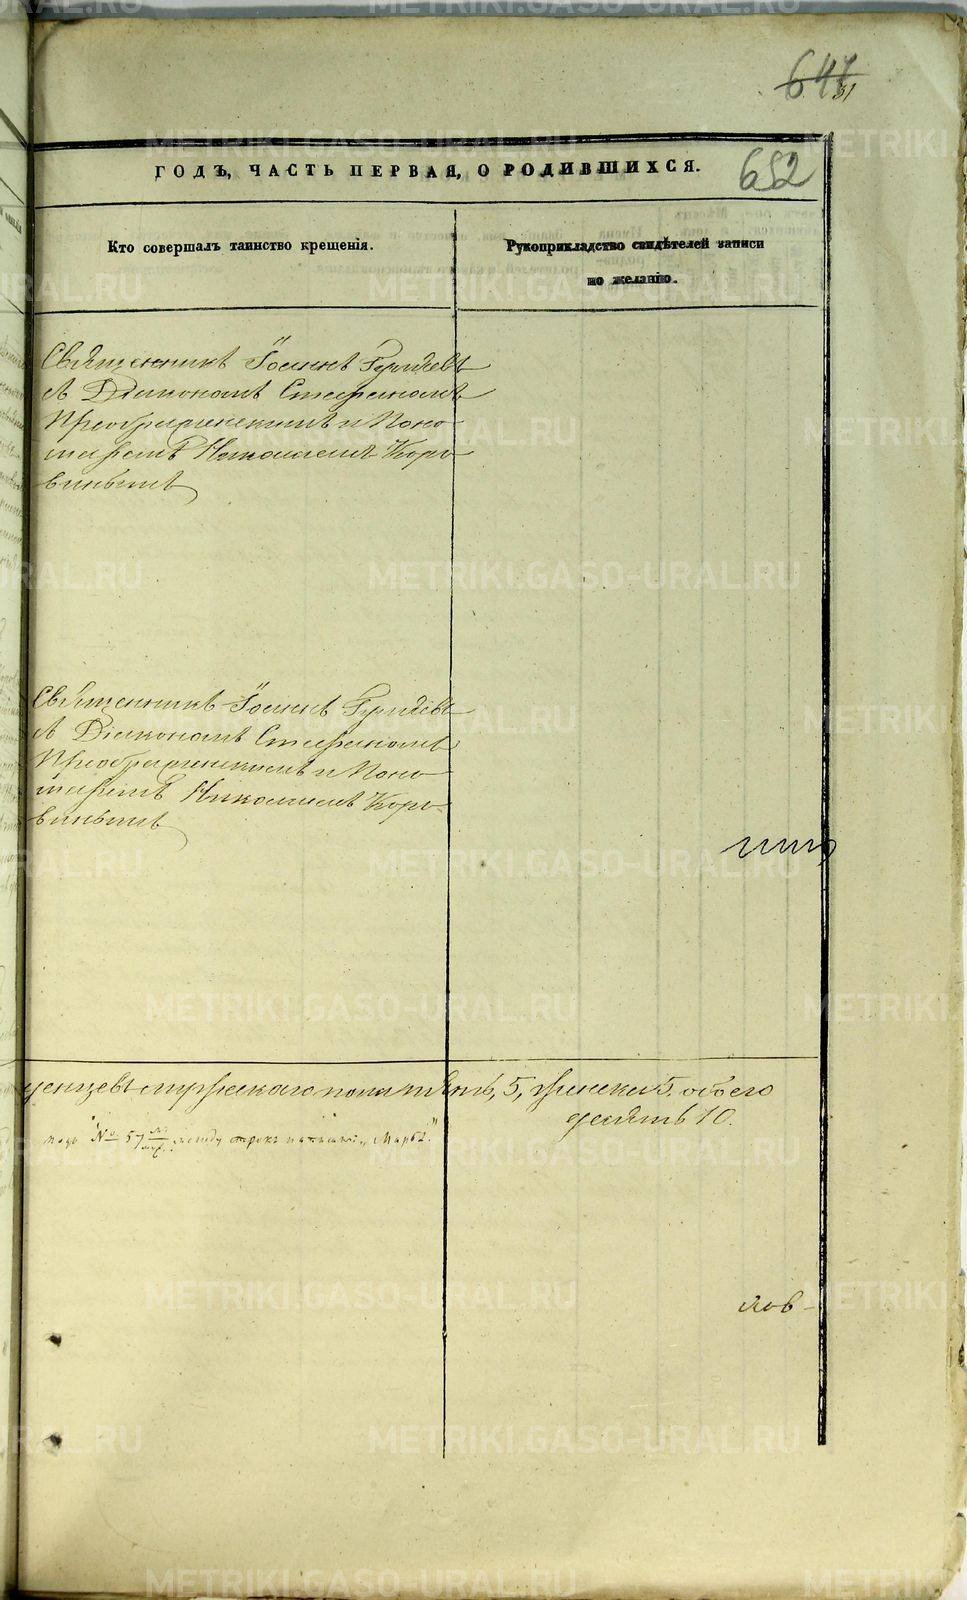 647
31
ГОДЪ, ЧАСТЬ ПЕРВАЯ, О РОДИВШИХСЯ.
652
Кто совершалъ таинство крещенія.
Рукоприкладство свидѣтелей записи
по желанію.
Священникъ Іоаннъ
съ Діакономъ Стефаномъ
Преображенскимъ и Поно-
маремъ Николаемъ Коро-
винымъ
Священникъ Іоаннъ
съ Діакономъ Стефаномъ
Преображенскимъ и Поно-
маремъ Николаемъ Коро-
винымъ
мужескаго пола пять, 5, женска 5, обоего
десять 10.
подъ "№ 57 между строкъ "Марѳа."
лов-
METRIKI.GASO-URAL.RU